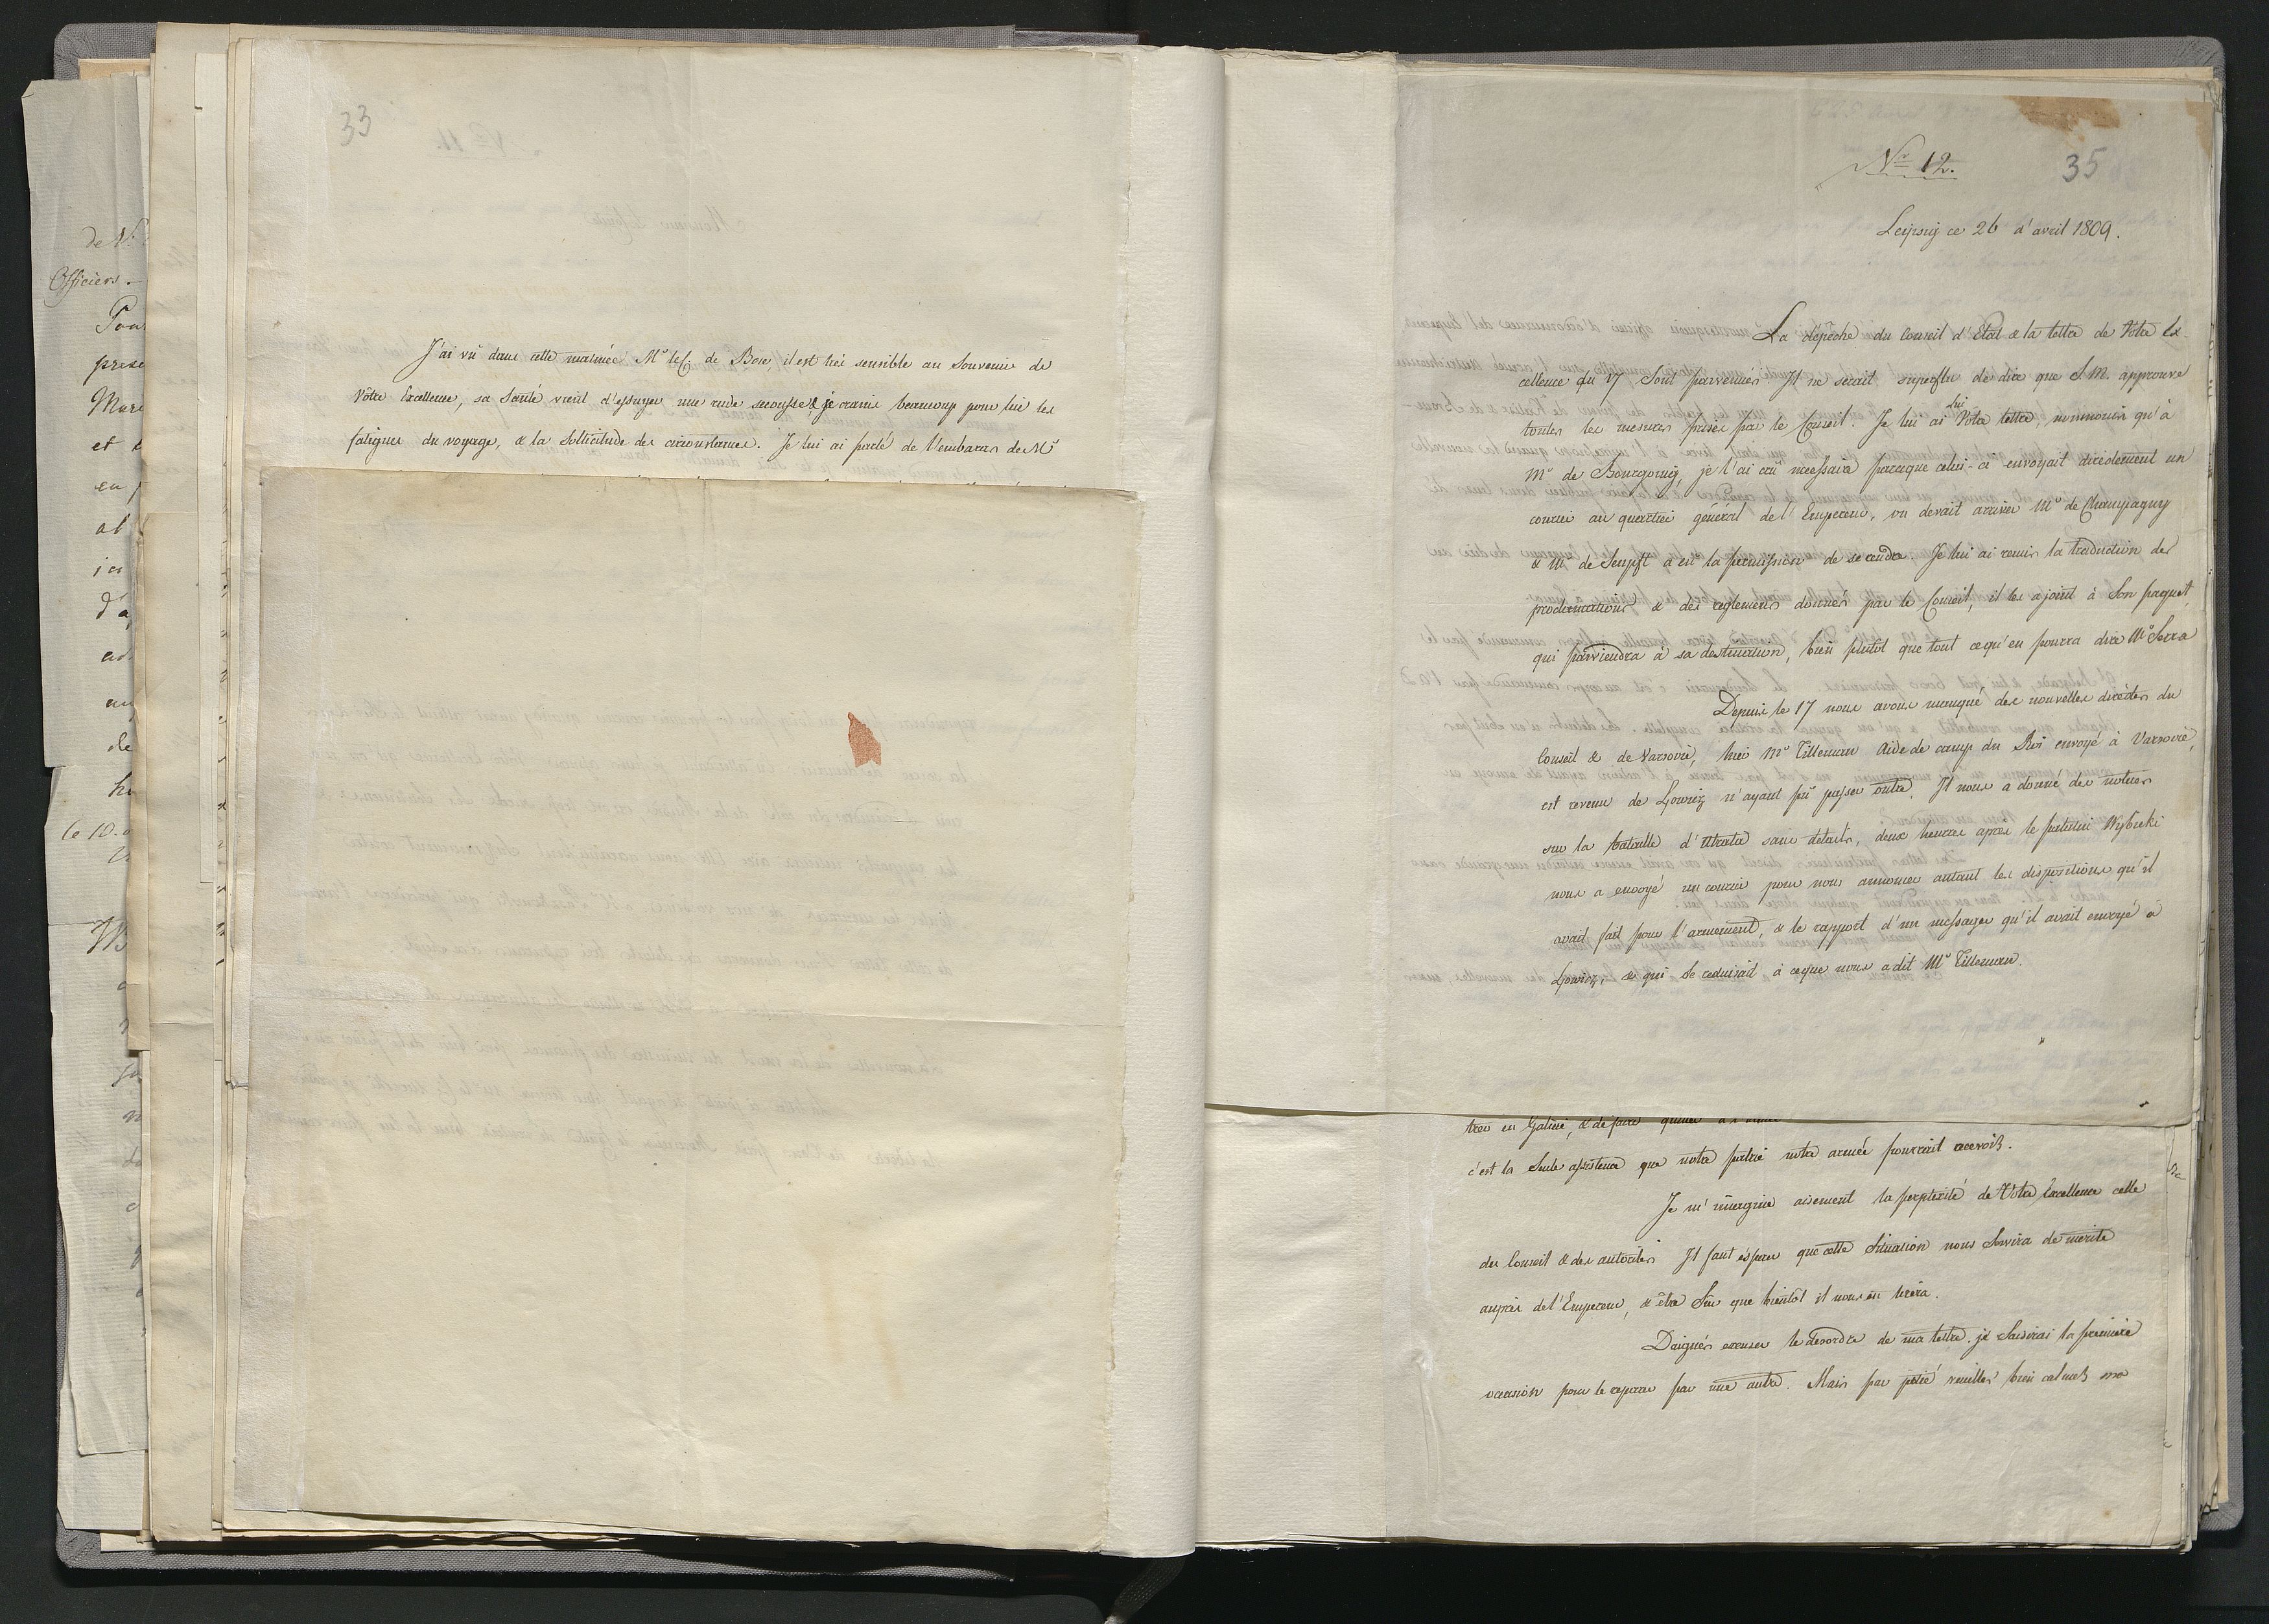 33
J'ai vû dans cette matinée Mr le C. de Bose, il est très sensible au Souvenir de
Vôtre Excellence, sa Santé vient d'essuyer une rude secousse, & je crains beaucoup pour lui les
fatigues du voyage, & la Sollicitude des circonstances. Je lui ai parlé de l'embaras de Mr
Nr 12.
35
Leipsig ce 26 d'avril 1809.
La dépêche du Conseil d'Etat & la lettre de Vôtre Ex-
cellence du 17 Sont parvenües. Il ne serait superflu de dire que S. M. approuve
toutes les mesures prises par le Conseil. Je lui ai lui Vôtre lettre, nonmoins qu'à
Mr de Bourgoing, je l'ai crû nécessaire parceque celui-ci envoyait directement un
courier au quartier général de l'Empereur, ou devait arriver Mr de Champagny
& Mr de Senfft a eu la permission de se rendre. Je lui ai remis la traduction des
proclamations & des reglemens donnés par le Conseil, il les a joint à Son paquet,
qui parviendra à sa destination, bien plutôt que tout cequ'en pourra dire Mr Serra
Depuis le 17 nous avons manqué des nouvelles directes du
Conseil & de Varsovie, hier Mr Tilleman Aide de camp du Roi envoyé à Varsovie,
est revenu de Lowicz n'ayant pû passer outre. Il nous a donné des notices
sur la bataille d'Utrata sans détails, deux heures après le palatin Wybicki
nous a envoyé un courier pour nous annoncer autant les dispositions qu'il
avait fait pour l'armement, & le rapport d'un messager qu'il avait envoyé à
Lowicz, & qui Se reduisait à ceque nous a dit Mr Tilleman.
trer en Galicie, & de faire
c'est la Seule assistence que notre patrie notre armée pourrait recevoir.
Je m'imagine aisement la perplexité de Vôtre Excellence celle
du Conseil & des autorités. Il faut ésperer que cette Situation nous Servira de mérite
auprès de l'Empereur, & être Sûr que bientôt il nous en tirera.
Daignés excuser le désordre de ma lettre. je Saisirai la première
occasion pour le reparer par une autre. Mais par pitié veuilles bien calmer ma
de N.
Officiers.
et
en
d'a
de
le 10.